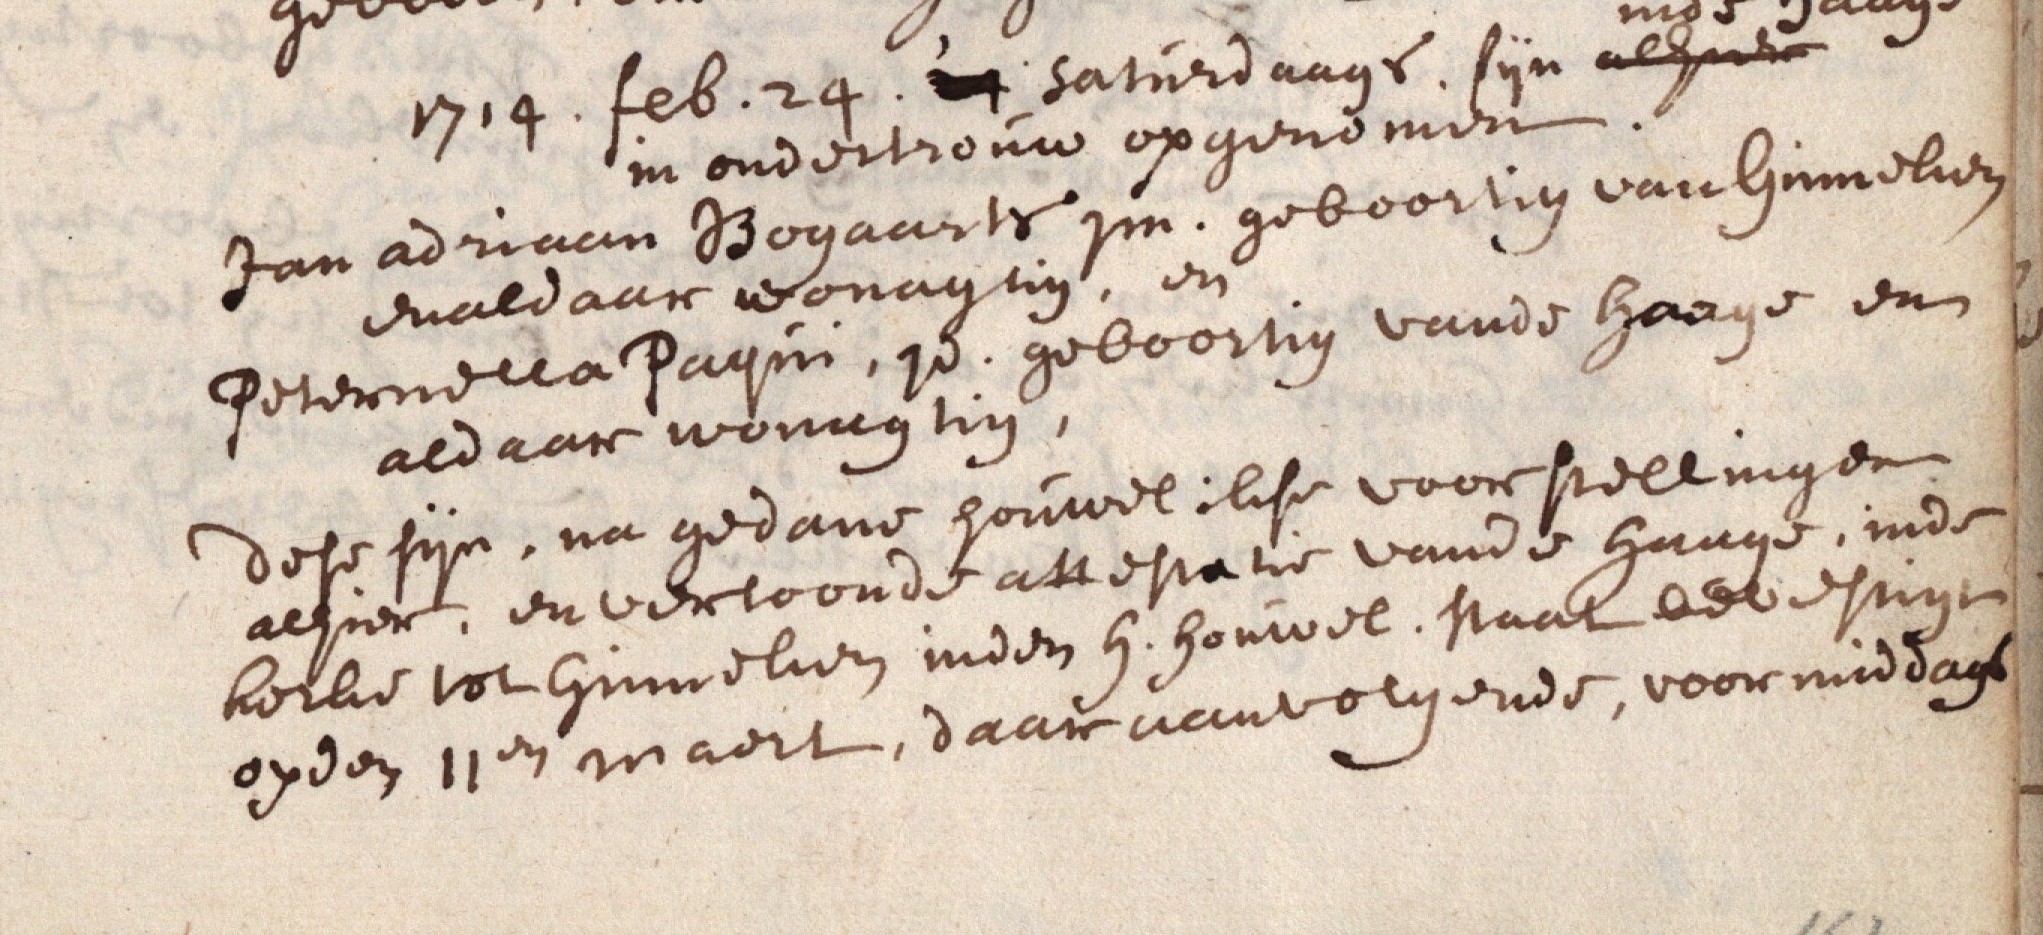 inde Haage
1714. feb. 24. saturdaags. sijn alhier
in ondertrouw opgenomen.
Jan adriaan Bogaarts jm. geboortig van Ginneken
en aldaar wonagtig, en
Peternella Paquí, jd. geboortig vande Haage en
aldaar wonagtig,
Dese sijn, na gedane houwelikse voorstellingen
alhier, en vertoonde attestatie vande Haage, inde
kerke tot Ginneken inden H. Houwel. staat bevestigt
opden 11en maert, daar aanvolgende, voormiddags